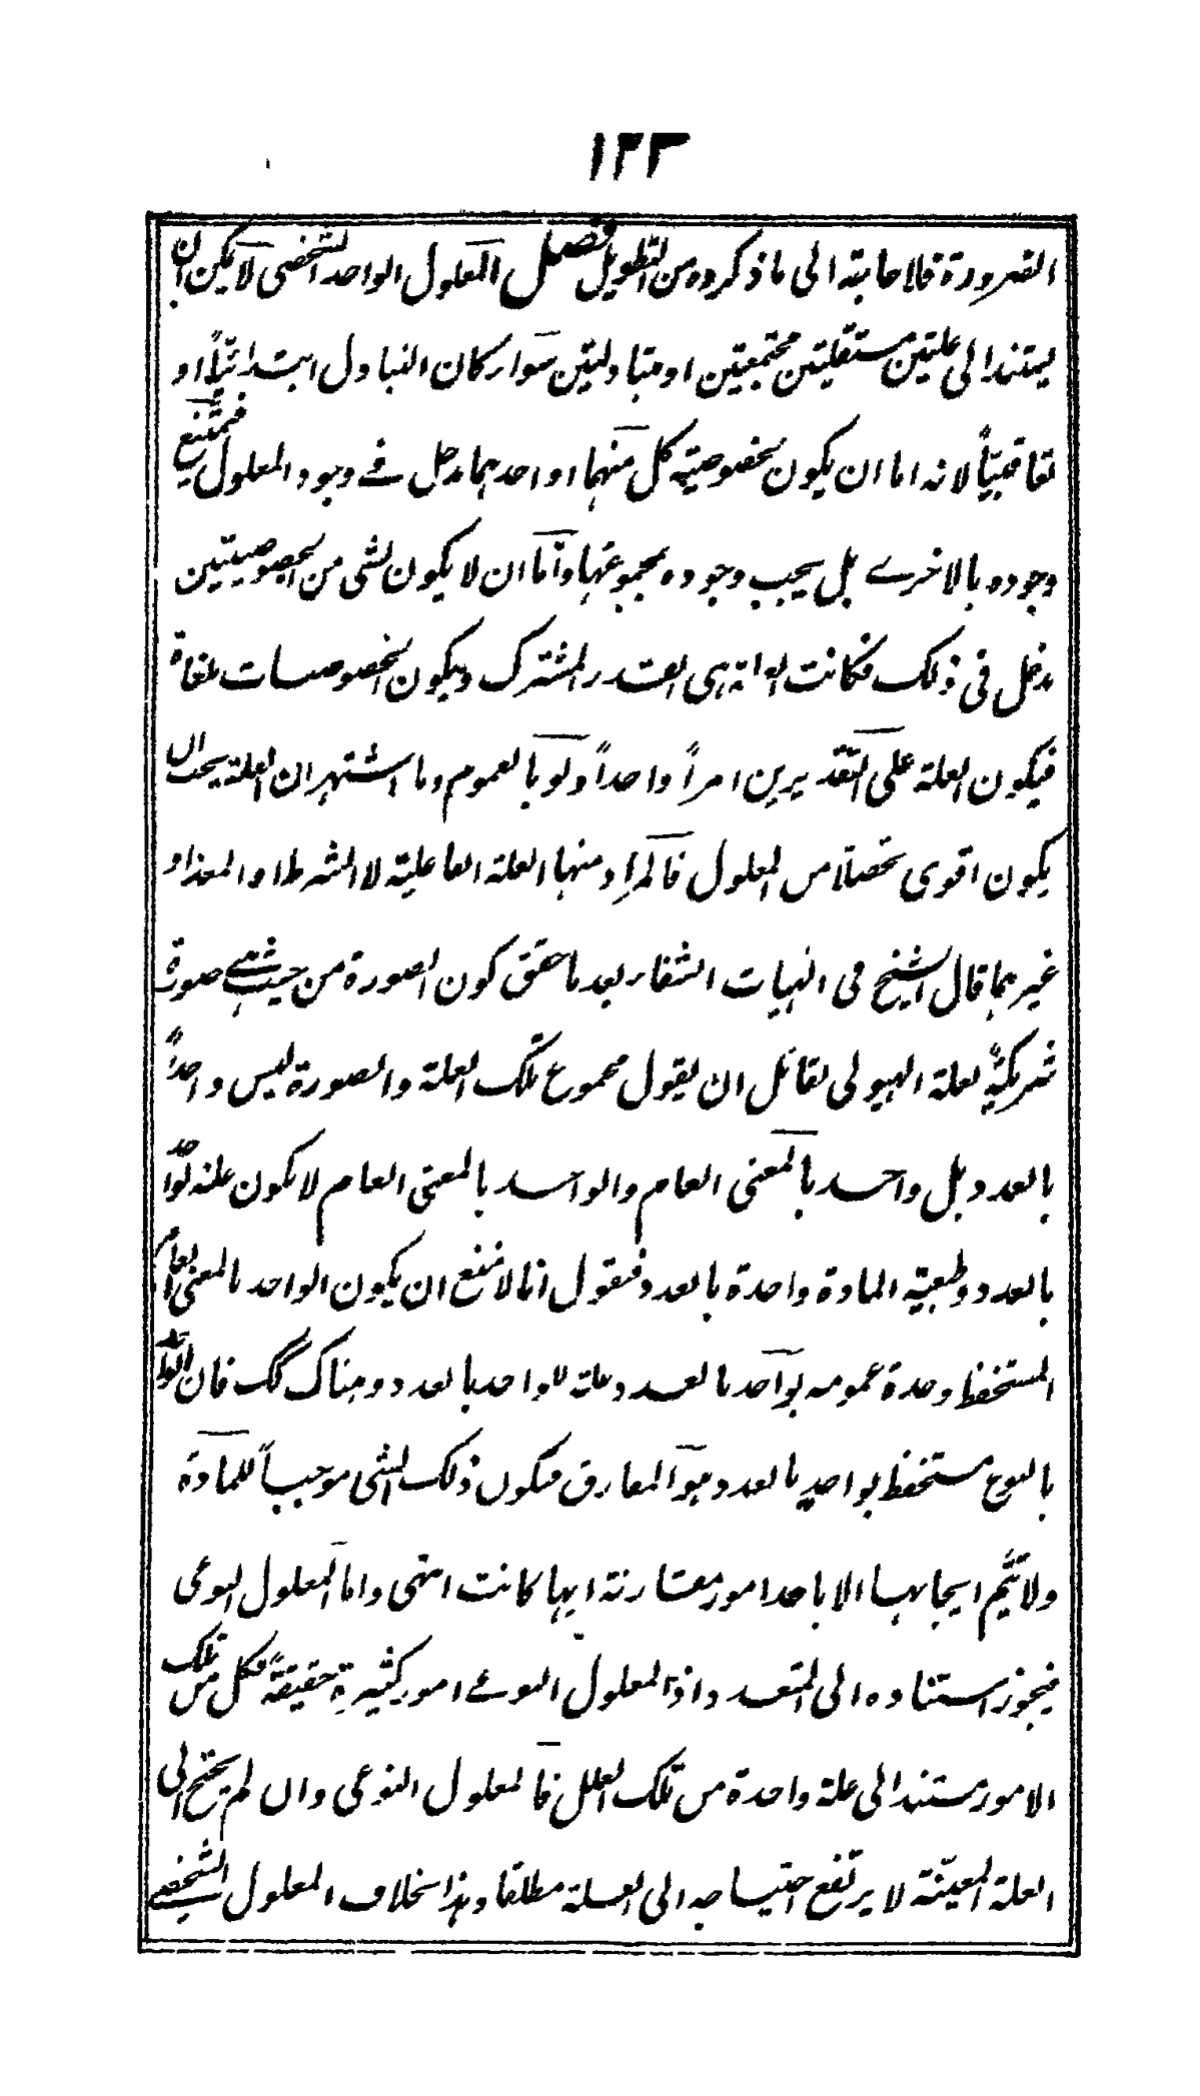 ١٢٣
الضرورة فلا حاجة الى ما ذكروه من التطويل فصل المعلول الواحد الشخصى لا يمكن ان
يستند الى علتين مستقلتين مجتمعتين او متبادلتين سواء كان التبادل ابتدائيًا او
تعاقبيًا لانه اما ان يكون لخصوصية كل منهما او احدهما مدخل فے وجود المعلول فيمتنع
وجوده بالاخرے بل يجب وجوده بمجموعهما واما ان لا يكون لشى من الخصوصيتين
مدخل فى ذلك فكانت العلة هى القدر المشترك ويكون الخصوصيات ملغاة
فيكون العلة على التقديرين امرًا واحدًا ولو بالعموم وما اشتهر ان العلة يجب ان
يكون اقوى تحصلا من المعلول فالمراد منها العلة الفاعلية لا الشرط او المعد او
غيرهما قال الشيخ فى الهيات الشفاء بعد ما حقق كون الصورة من حيث هے صورة
شريكةً لعلة الهيولى لقائل ان يقول مجموع تلك العلة والصورة ليس واحدًا
بالعدد بل واحد بالمعنى العام والواحد بالمعنى العام لا يكون علة لواحد
بالعدد وطبيعة المادة واحدة بالعدد فنقول انا لا نمنع ان يكون الواحد بالمعنى العام
المستحفظ وحدة عمومه بواحد بالعدد علة للواحد بالعدد وهناك كك فان الواحد
بالنوع مستحفظ بواحد بالعدد وهو المفارق فيكون ذلك الشى موجبًا للمادة
ولا يتم ايجابها الا باحد امور مقارنة ايها كانت انتهى واما المعلول النوعى
فيجوز استناده الى المتعدد اذ المعلول النوعے امور كثيرة حقيقةً فكل من تلك
الامور مستند الى علة واحدة من تلك العلل فالمعلول النوعى وان لم يحتج الى
العلة المعينة لا يرتفع احتياجه الى العلة مطلقا وهذا بخلاف المعلول الشخصے